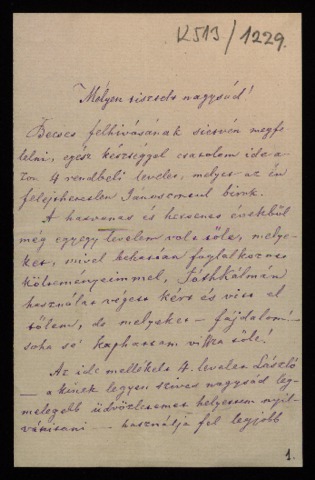 K513/1229.
Mélyen tisztelt nagysád!
Becses felhivásának sietvén megfe
lelni, egész készséggel csatolom ide a-
zon 4 rendbeli levelet, melyet az én
felejthetetlen Jánosomtul birok.
A hatvanas és hetvenes évekbül
még egy egy levelem volt tőle, melye-
ket, mivel behatóan foglalkozott
költeményeimmel, Tóth Kálmán
használat végett kért és vitt el
tőlem, de melyeket – fájdalom! –
soha se kaphattam vissza tőle!
Az ide mellékelt 4. levelet László
– a kinek legyen szives nagysád leg-
melegebb üdvözletemet helyettem nyil-
vánitani – használja fel legjobb
1.